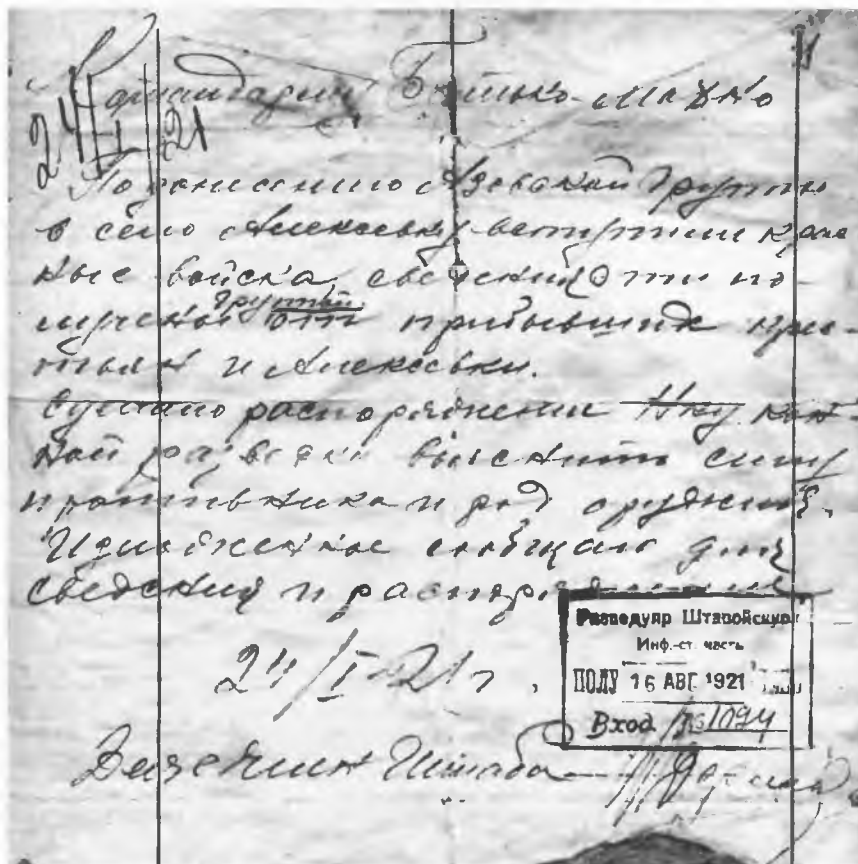 Командарму Батько-Махно
24/I 21
По донесению Азовской группы
в село Алексеевку вступили крас
ные войска, сведения эти по-
группой
лучены от прибывших кре-
стьян и Алексеевки.
Сделано распоряжение Нку кон-
ной разведки выяснить силу
противника и род оружия.
Изложенное сообщаю для
сведения и распоряжения
24/I-21 г.
Разведупр Штавойскукр
Инф.-ст. часть
ПОЛУ 16 АВГ 1921
Вход. № 1094
Штаба